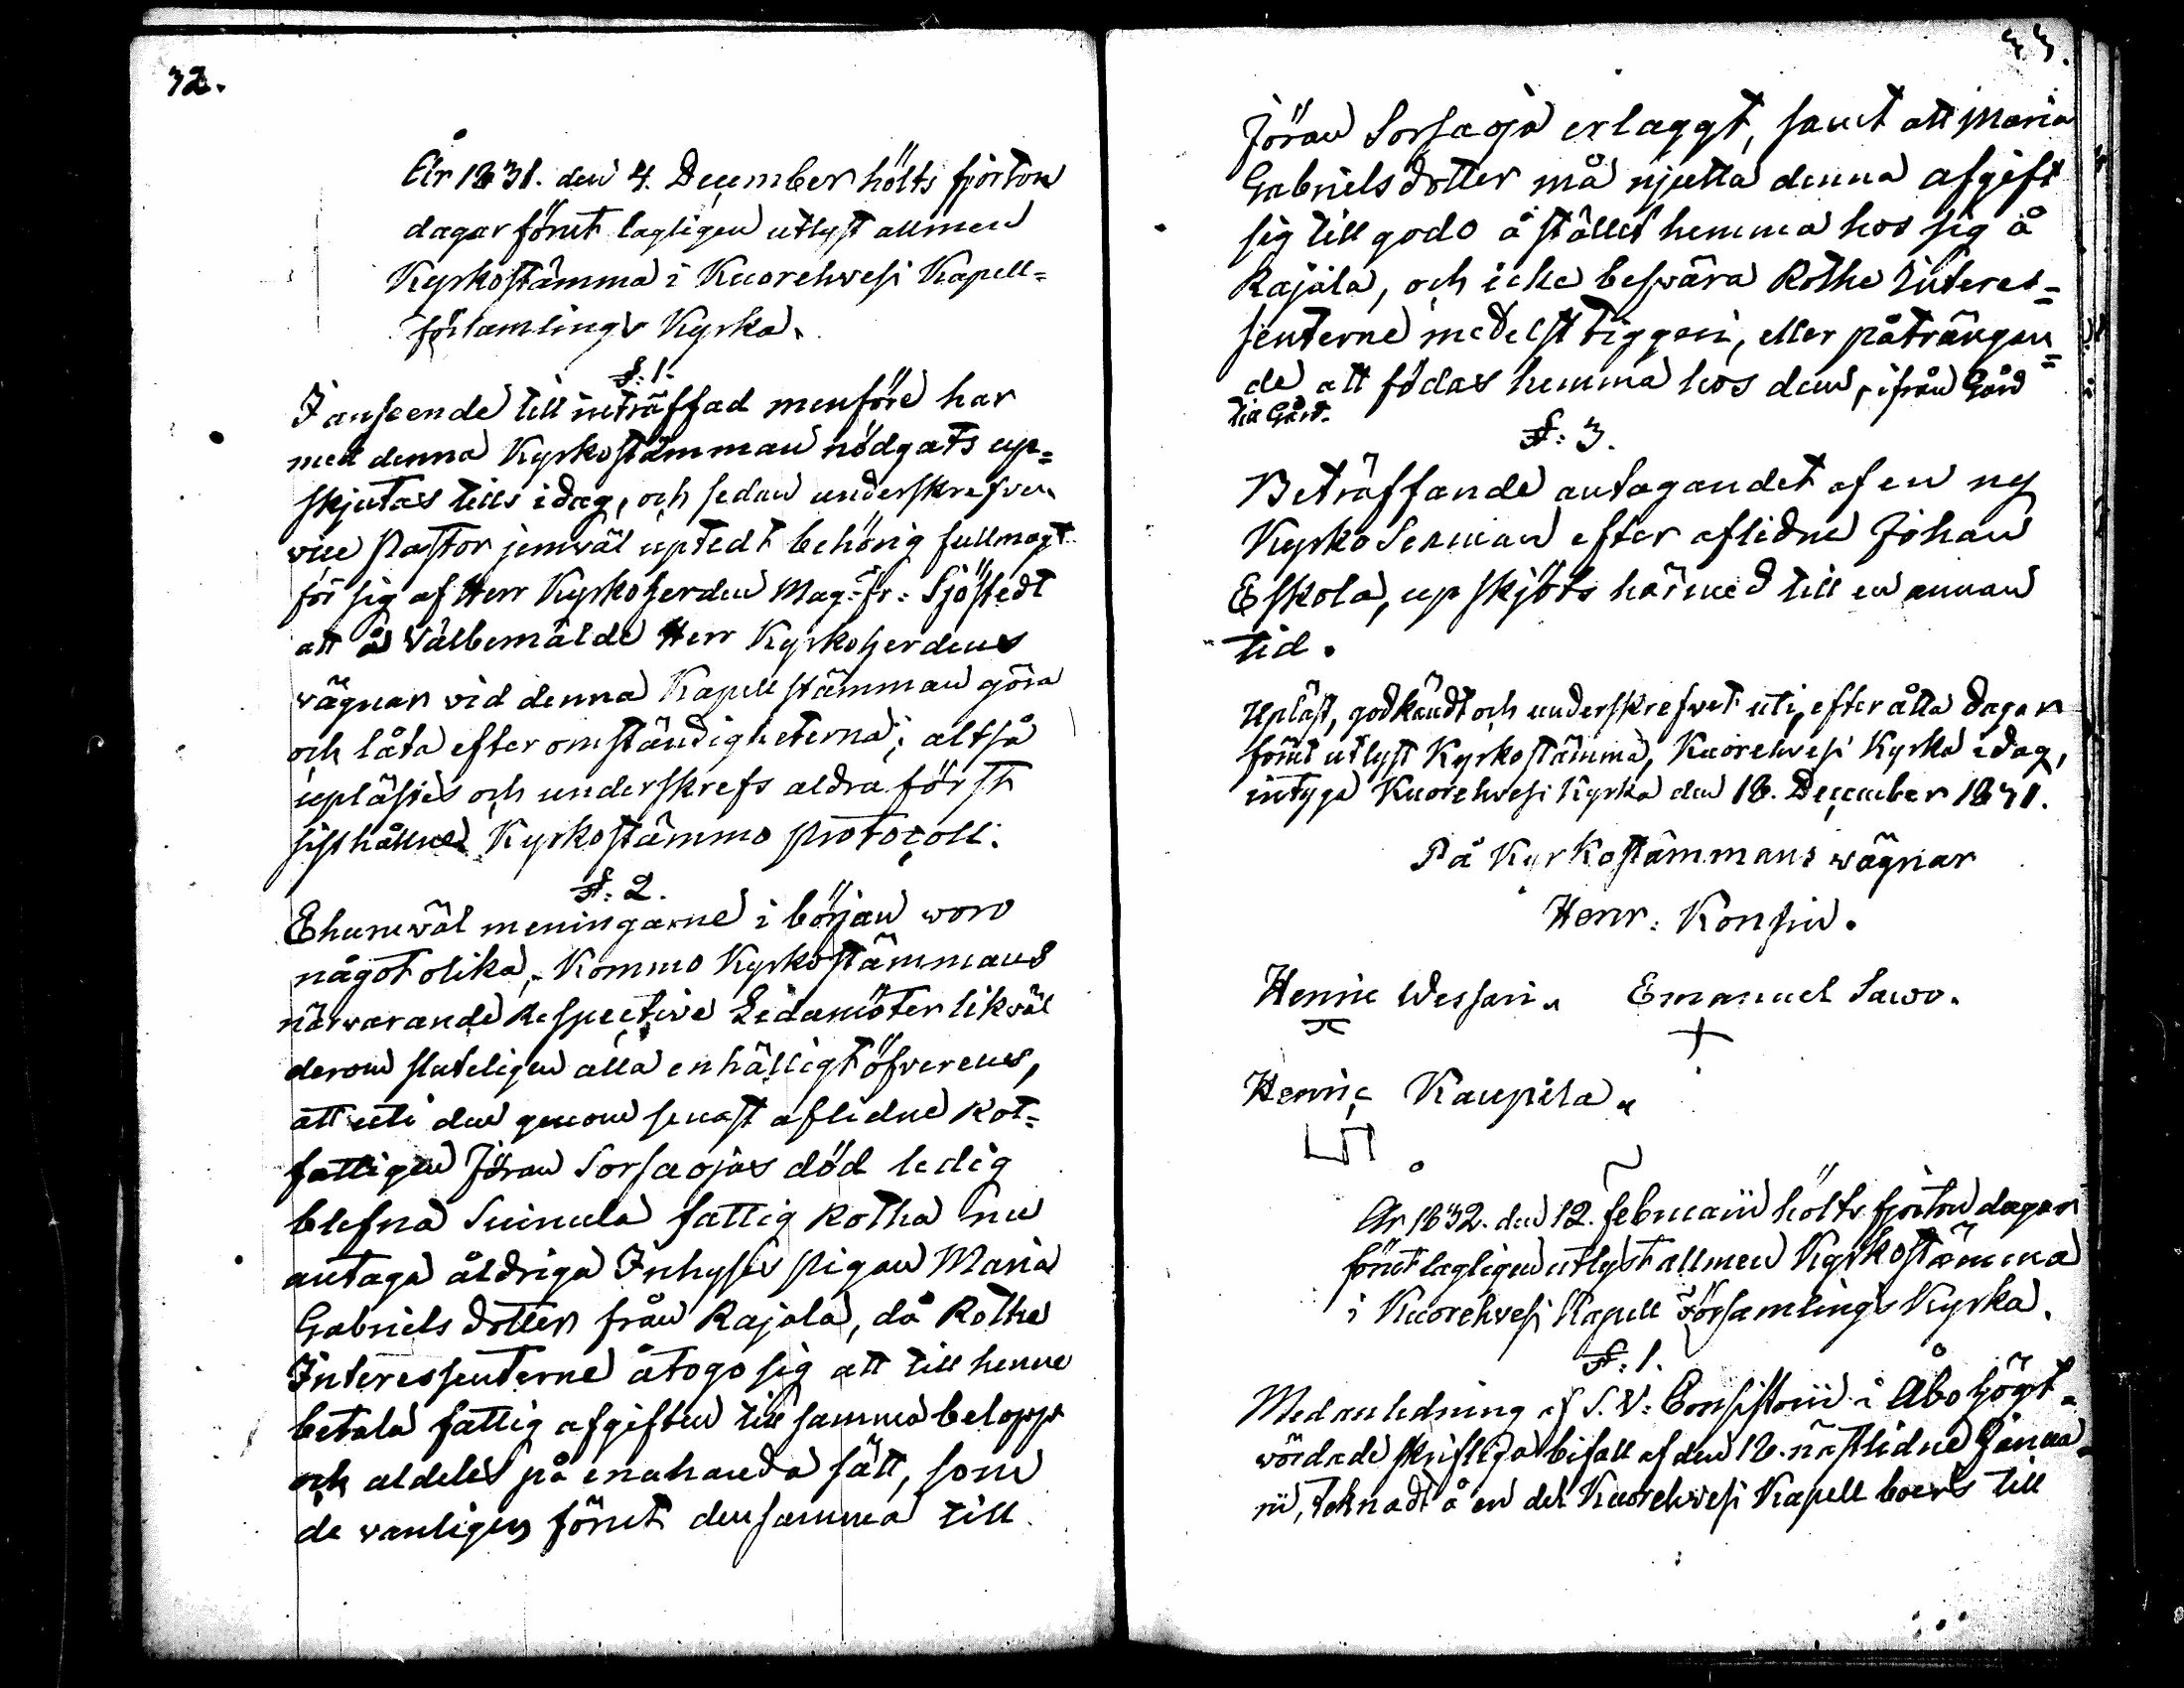 32.
År 1831. den 4. December hölts fjorton
dagar förut lagligen utlyst allmen
Kyrkostämma i Kuorehvesi Kapell=
församlings Kyrka.
§: 1.
I anseende till inträffad menföre har
med denna Kyrkostämman nödgats up=
skjutas tills idag, och sedan underskrefven
vice Pastor jemväl uptedt behörig fullmagt
för sig af Herr Kyrkoherden Mag: Fr: Sjöstedt
att å Välbemälde Herr Kyrkoherdens
vägnar vid denna Kapell stämman göra
och låta efter omständigheterna; altså
uplästes och underskrefs aldra först
sisthållne Kyrkostämmo protocoll.
§: 2.
Ehuruväl meningarne i början voro
något olika, Kommo Kyrkostämmans
närvarande Respective Ledamöter likväl
derom sluteligen alla enhälligt öfverens,
att uti den genom senast aflidne Rot=
fattigen Jöran Sorsaojas död ledig
blefna Suinula fattig Rotha nu
antaga åldriga Inhyses pigan Maria
Gabriels dotter från Rajala, då Rothe
Interessenterne åtogo sig att till henne
betala fattig afgiften till samma belopp
och aldeles på enahanda sätt, som
de vanligen förut densamma till
33.
Jöran Sorsaoja erlaggt, samt att Maria
Gabrielsdotter må njutta denna afgift
sig till godo å stället hemma hos sig å
Rajala, och icke besvära Rothe Interes=
senterne medelst tiggeri, eller påträngan=
de att födas hemma hos dem, ifrån Gård
till Gård.
§: 3.
Beträffande antagandet af en ny
Kyrko Sexman efter aflidne Johan
Eskola, upskjöts härmed till en annan
tid.
Upläst, godkändt och underskrefvet uti, efter åtta dagar
förut utlyst Kyrkostämma, Kuorehvesi Kyrka idag,
intyga Kuorehvesi Kyrka den 18. December 1831.
På Kyrkostämmans vägnar
Henr: Konsin.
Henric Wessari. Emanuel Sawo.
Henric Kaupila.
År 1832. den 12. Februarii hölts fjorton dagar
förut lagligen utlyst allmen Kyrkostämma
i Kuorehvesi Kapell Församlings Kyrka.
§: 1.
Med anledning af S. V: Consistorii i Åbo högt=
vördade skriftliga bifall af den 18. nästlidne Janua=
rii, teknadt å en del Kuorehvesi Kapell boers till